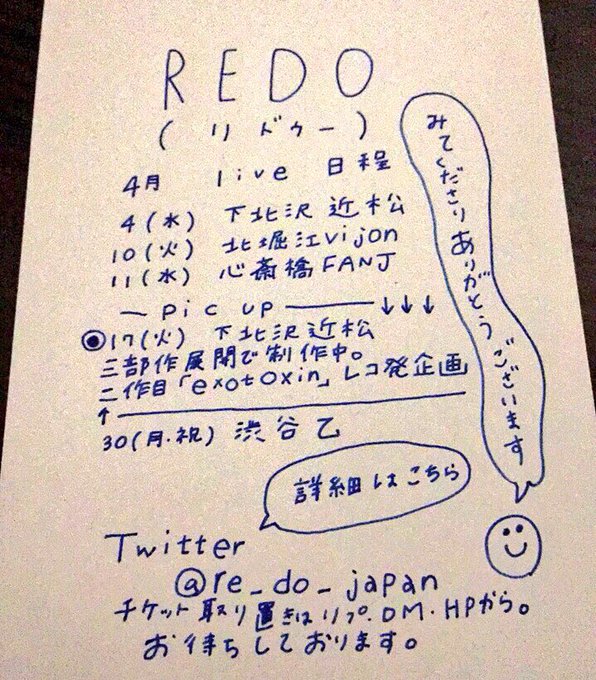 REDO
(リドゥー)
4月 live 日程
4(水) 下北沢 近松
10(火) 北堀江vijon
11(水) 心斎橋FANJ
pic up ↓↓↓
◉17(火) 下北沢近松
三部作展開で制作中。
二作目「exotoxin」レコ発企画
↑
30(月・祝) 渋谷乙
みてくださりありがとうございます
詳細はこちら
Twitter
@re_do_japan
チケット取り置きはリプ.DM.HPから。
お待ちしております。